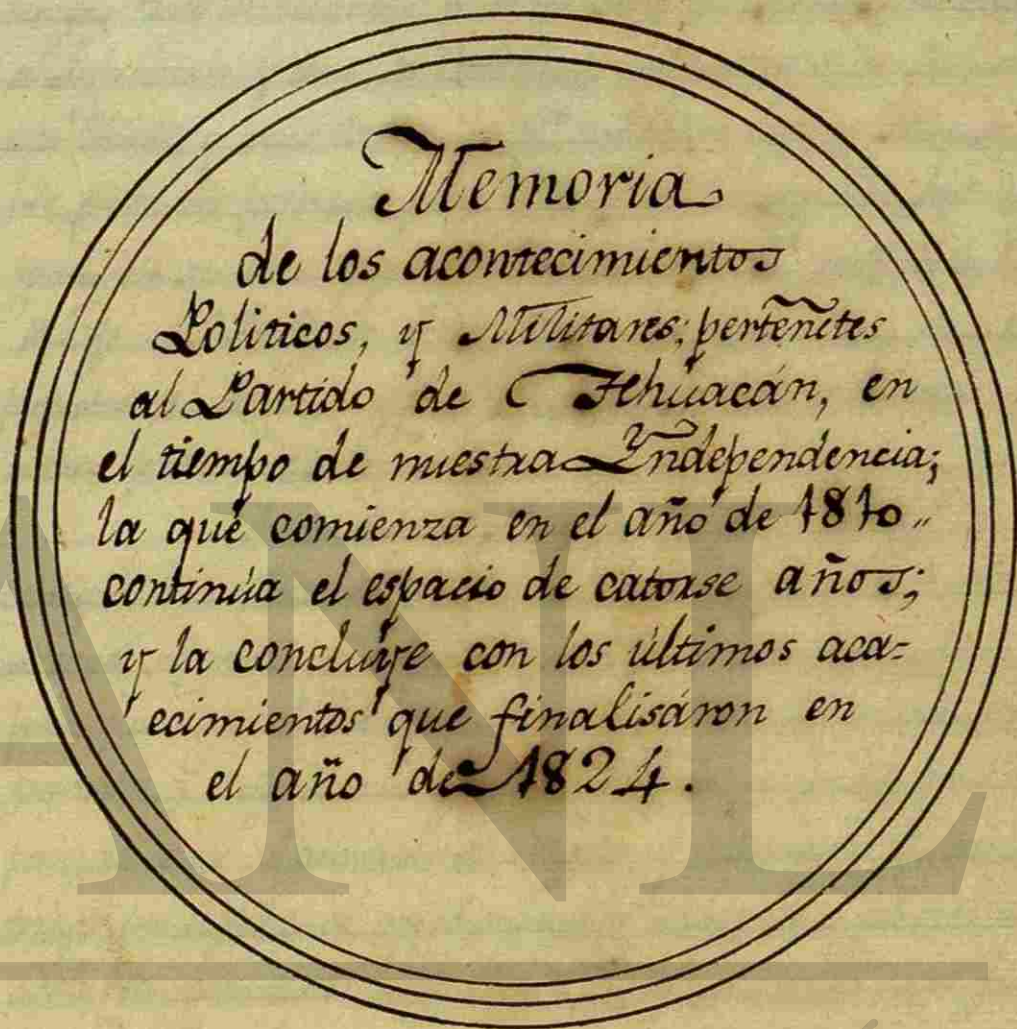 Memoria
de los acontecimientos
Politicos, y Militares; perteñctes
al Partido de Tehuacán, en
el tiempo de nuestra Yndependencia;
la que comienza en el año de 1810„
continúa el espacio de catorse años;
y la concluye con los últimos aca=
ecimientos que finalisáron en
el año de 1824.